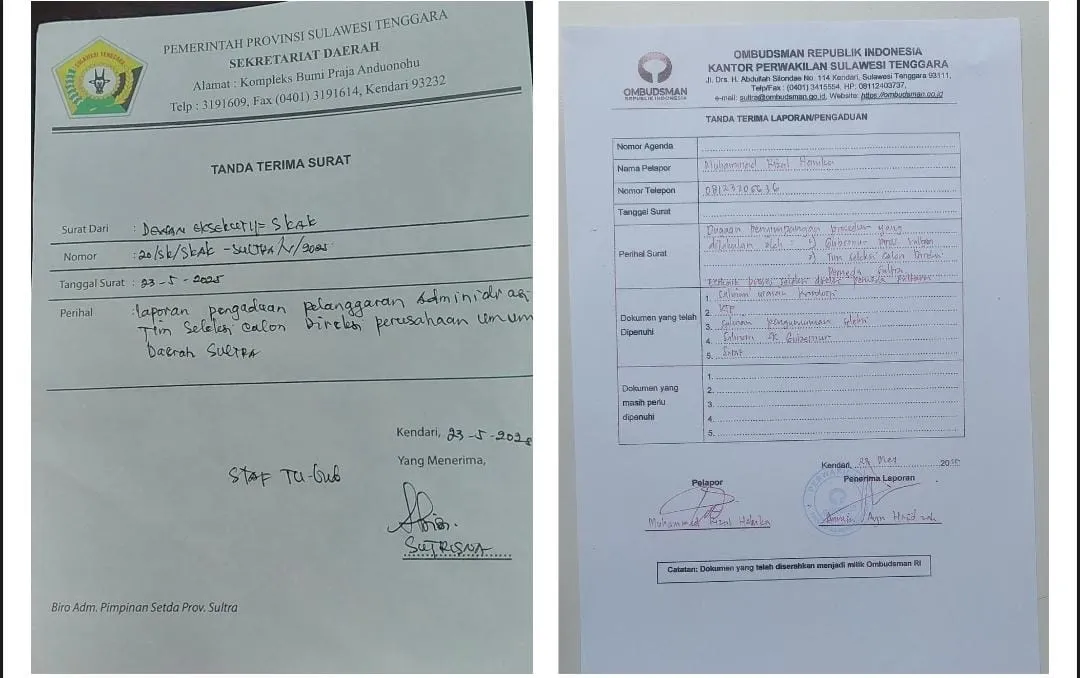 PEMERINTAH PROVINSI SULAWESI TENGGARA
SEKRETARIAT DAERAH
Alamat : Kompleks Bumi Praja Anduonohu
Telp : 3191609, Fax (0401) 3191614, Kendari 93232
TANDA TERIMA SURAT
Surat Dari : DEWAN EKSEKUTIF SKAK
Nomor : 20/SK/SKAK-SULTRA/V/2025
Tanggal Surat : 23-5-2025
Perihal : laporan pengaduan pelanggaran Administrasi
Tim Seleksi calon Direksi perusahaan umum
Daerah SULTRA
Kendari, 23-5-2025
Yang Menerima,
STAF TU-Gub
SUTRISNA
Biro Adm. Pimpinan Setda Prov. Sultra
OMBUDSMAN
REPUBLIK INDONESIA
OMBUDSMAN REPUBLIK INDONESIA
KANTOR PERWAKILAN SULAWESI TENGGARA
Jl. Drs. H. Abdullah Silondae No. 114 Kendari, Sulawesi Tenggara 93111,
Telp/Fax : (0401) 3415554, HP: 08112403737,
e-mail: sultra@ombudsman.go.id, Website: https://ombudsman.go.id
TANDA TERIMA LAPORAN/PENGADUAN
Nomor Agenda
Nama Pelapor Muhammad Rizal
Nomor Telepon
Tanggal Surat
Perihal Surat Dugaan penyimpangan prosedur yang
dilakukan oleh : 1) Gubernur
2) Tim seleksi calon Direksi
Sultra
proses seleksi
Dokumen yang telah Dipenuhi
1.
2. KTP
3. Salinan pengumuman seleksi
4. Salinan SK Gubernur
5. Surat
Dokumen yang masih perlu dipenuhi
1.
2.
3.
4.
5.
Kendari, 23 Mei 2025
Pelapor
Penerima Laporan
Muhammad Rizal
Catatan: Dokumen yang telah diserahkan menjadi milik Ombudsman RI